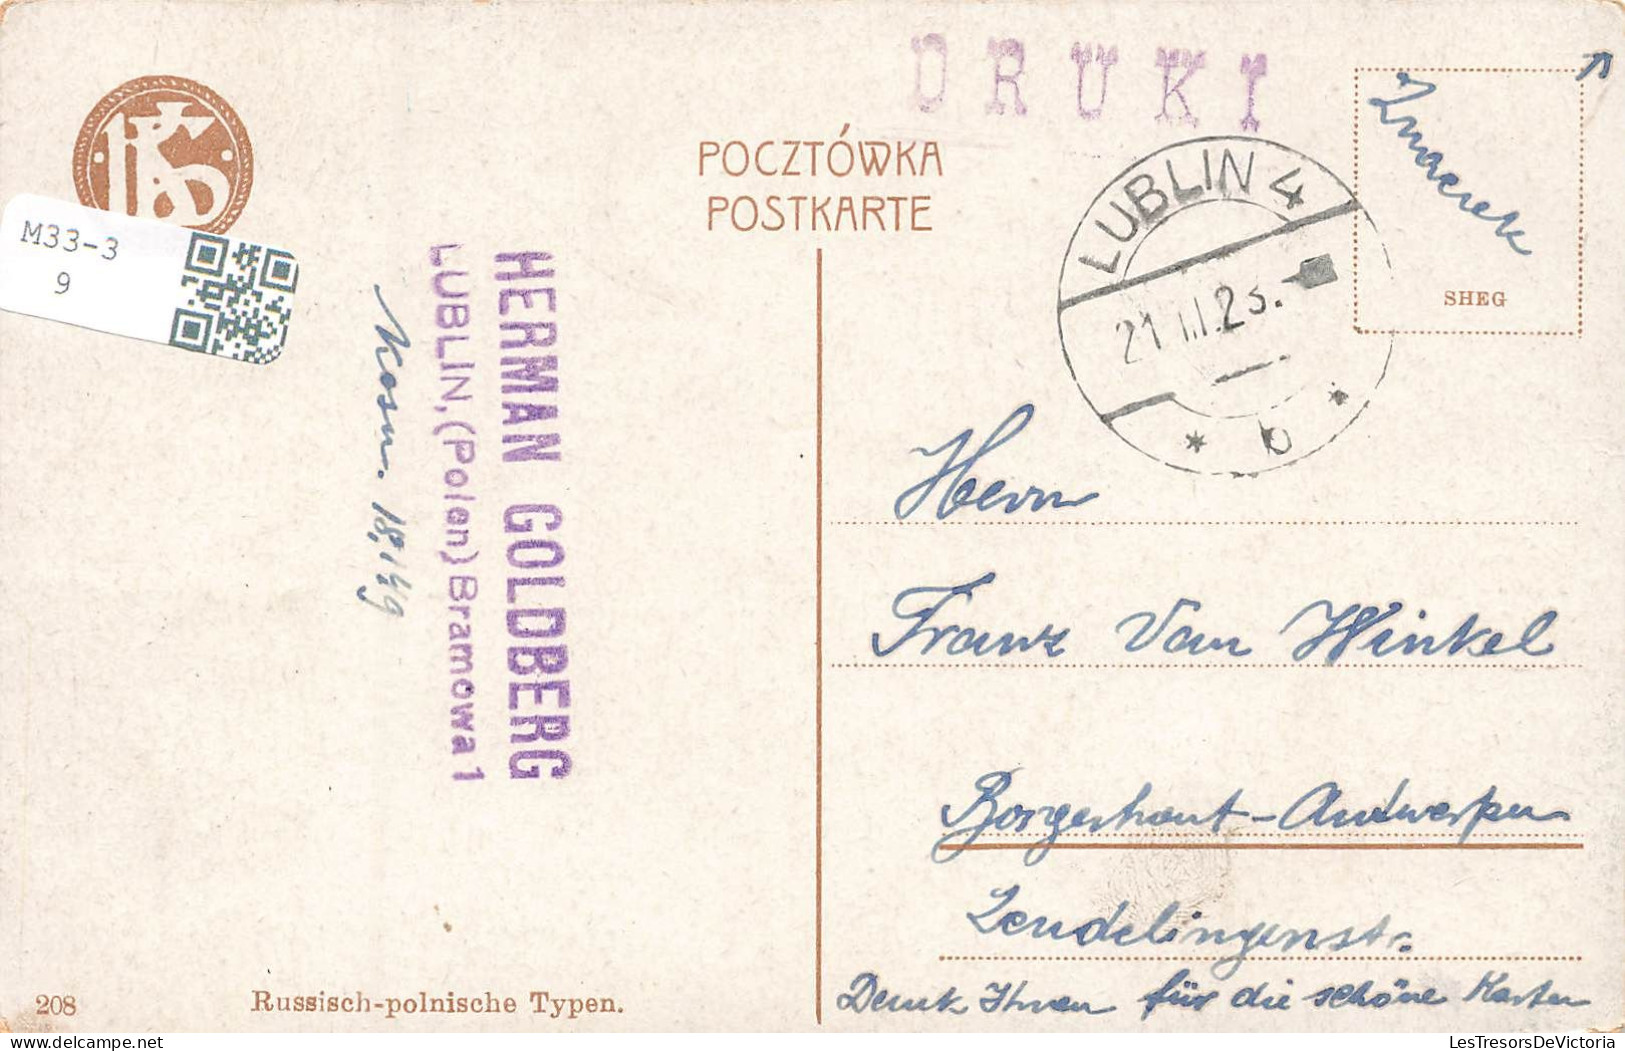 DRUKI
POCZTÓWKA
POSTKARTE
LUBLIN 4
21.III.23.
b
Znaczek
SHEG
M33-3
9
HERMAN GOLDBERG
LUBLIN, (Polen) Bramowa 1
Kosm. 18,149
Herrn
Franz Van Winkel
Borgerhout-Antwerpen
Zendelingenstr.
Dank Ihnen für die schöne Karten
208
Russisch-polnische Typen.
LesTresorsDeVictoria